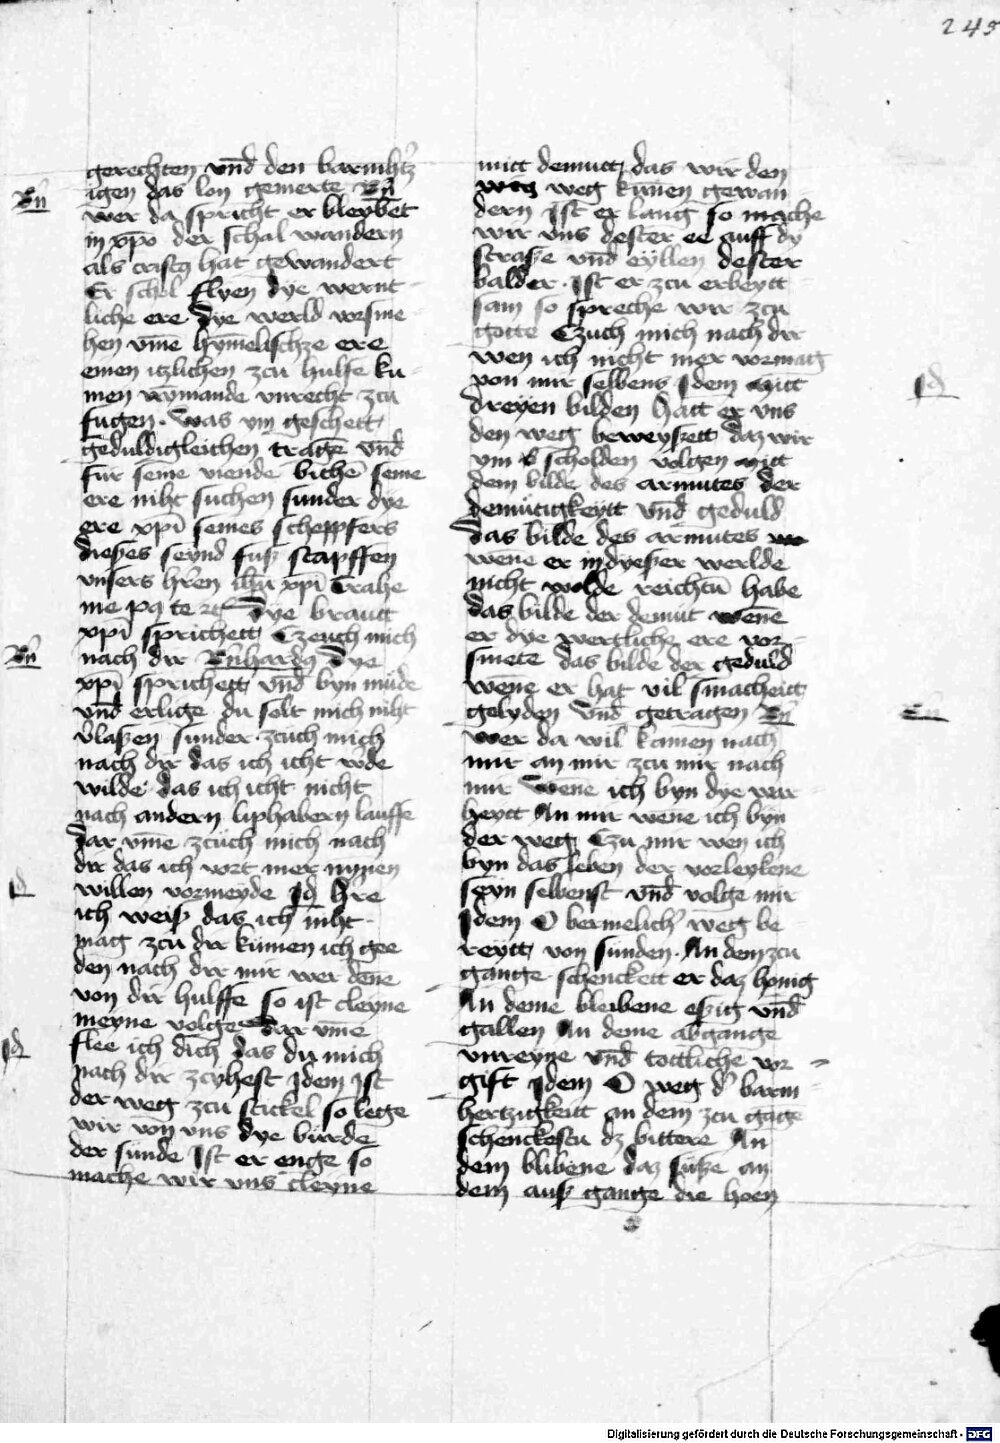 245
gerechten vnd den barmhrcz
igen das lon gemerte Bn
Bn
wer da spricht er bleybet
in xpo der schal wandern
als cristq hat gewandert
Er schol flyen dye wernt-
liche ere dye werld vorsme-
hen vme hymelischze ere
einen itzlichen zcu hulfe ku-
men nymande vnrecht zcu
fugen. Was ym geschett
geduldigleichen trage vnd
fur seine viende bithe seine
ere niht suchen sunder dye
ere xpi seines scheppfers
dieses seynd fusz stapffen
vnsers hren ihu xpi Trahe
me pq te rc Dye brautt
xpi sprichett Czeuch mich
nach dir Bnhardq Dye
Bn
xpi sprichett vnd byn mude
vnd erlige du solt mich niht
vlaszen sunder zcuch mich
nach dir das ich icht wde
wilde das ich icht nicht
nach andern liphabern lauffe
dar vme zcuch mich nach
dir das ich vort mer mynen
willen vormeyde Id hre
Id
ich weisz das ich niht
mag zcu dir kumen ich gee
den nach dir mir wer dene
von dir hulffe so ist cleyne
meyne volge dar vme
flee ich dich das du mich
Id
nach dir zcyhest Idem Ist
der weg zcu stickel so lege
wir von vns dye burde
der sunde Ist er enge so
mache wir vns cleyne
mitt demutt das wir den
weg kunen gewan
dern Ist er lang so mache
wir vns dester ee auff dy
strasze vnd eyllen dester
balder. Ist er zcu erbeytt
sam so spreche wir zcu
gotte Czuch mich nach dir
wen ich nicht mer vormag
von mir selbens Idem Mitt
Id
dreyen bilden hatt er vns
den weg beweyszett daz wir
ym scholden volgen mitt
dem bilde des armutes der
demutigkeytt vnd geduld
das bilde des armutes
wene er in dyeser werlde
nicht wolde reichtu habe
das bilde der demut wene
er dye wertliche ere vor-
smete das bilde der geduld
wene er hat vil smacheitt
gelyden vnd getragen Bn
Bn
wer da wil komen nach
mir an mir zcu mir nach
mir Wene ich byn dye war
heytt An mir wene ich byn
der weg Czu mir wen ich
byn das leben der vorleykene
seyn selbenst vnd volge mir
Idem O bermelicher weg be
reytt von sunden. An dem zcu
gange schenckett er daz honig
An deme bleibene eszig vnd
gallen An deme abgange
vnreyne vnd tottliche vor-
gift Idem O weg der barm
hertzigkeitt an dem zcu gage
schenckestu dz bittere An
dem blibene daz susze an
dem ausz gange die hoen
Digitalisierung gefördert durch die Deutsche Forschungsgemeinschaft - DFG